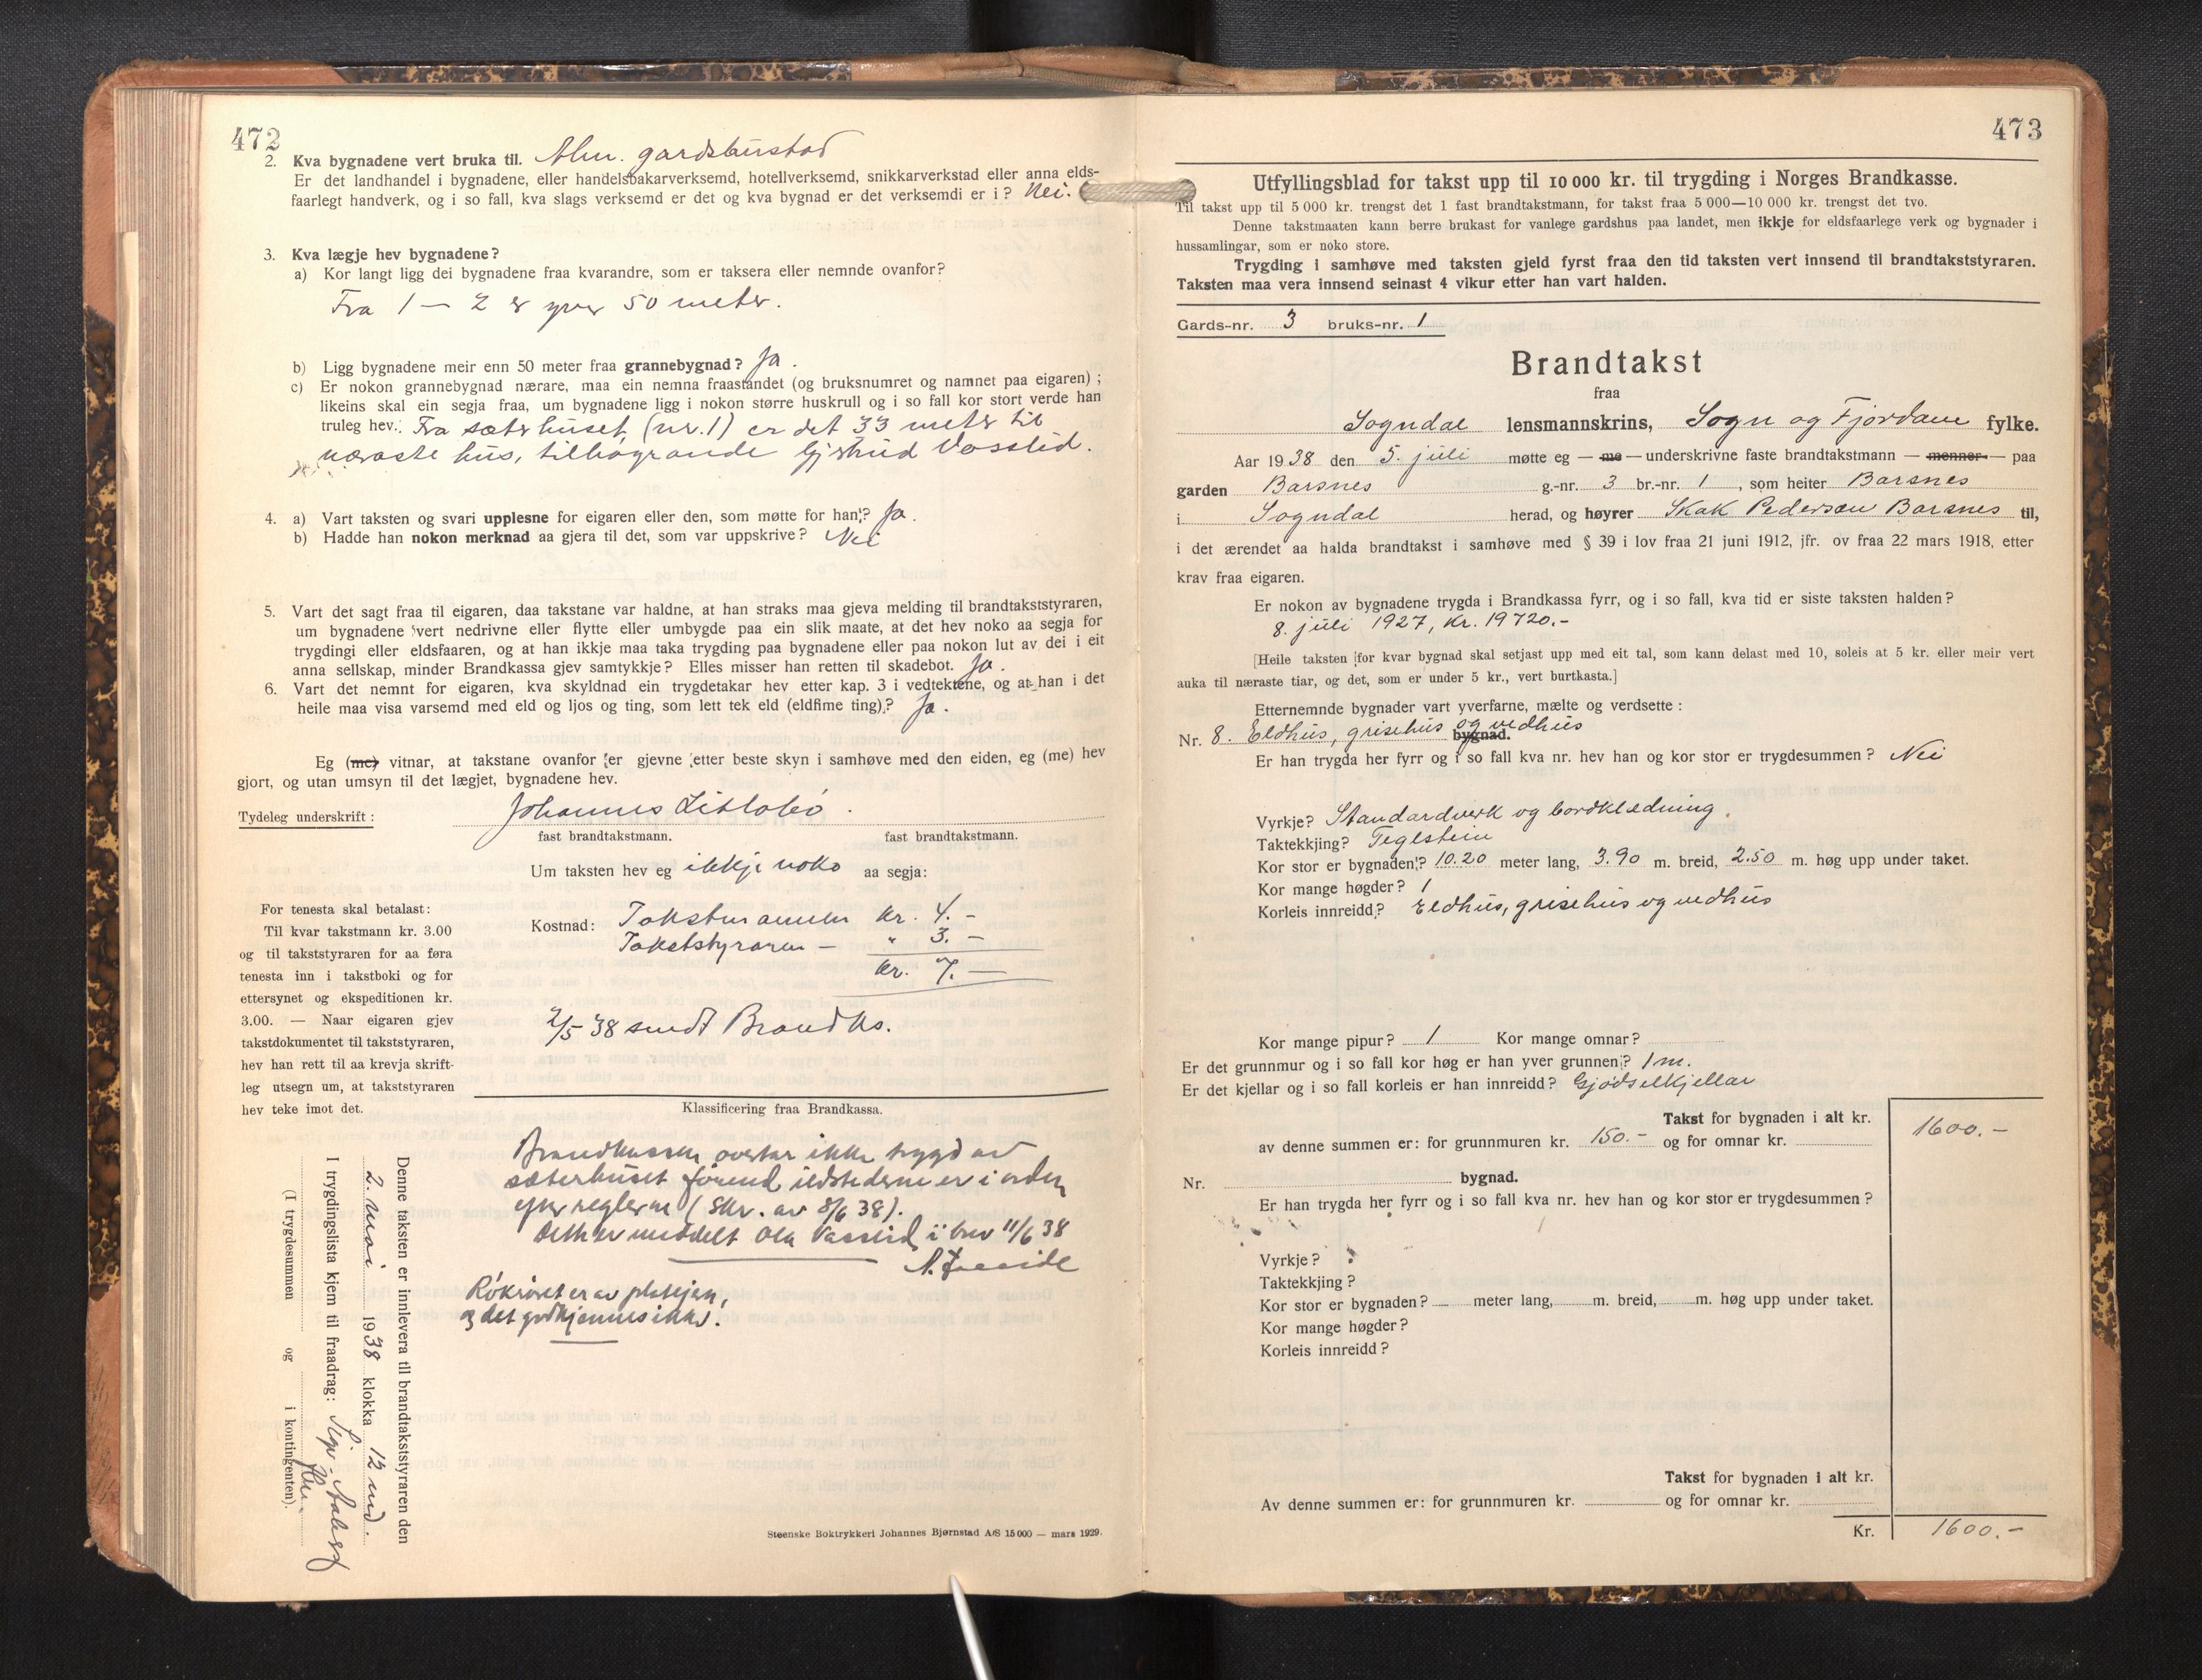 472
2. Kva bygnadene vert bruka til. Alm. gardsbustad
Er det landhandel i bygnadene, eller handelsbakarverksemd, hotellverksemd, snikkarverkstad eller anna elds-
faarlegt handverk, og i so fall, kva slags verksemd er det og kva bygnad er det verksemdi er i? Nei.
3. Kva lægje hev bygnadene?
a) Kor langt ligg dei bygnadene fraa kvarandre, som er taksera eller nemnde ovanfor?
Fra 1 — 2 er yver 50 meter.
b) Ligg bygnadene meir enn 50 meter fraa grannebygnad? Ja.
c) Er nokon grannebygnad nærare, maa ein nemna fraastandet (og bruksnumret og namnet paa eigaren);
likeins skal ein segja fraa, um bygnadene ligg i nokon større huskrull og i so fall kor stort verde han
truleg hev. Fra sæterhuset (nr. 1) er det 33 meter til
næraste hus, tilhøgrande Gjertrud Vasslid.
4. a) Vart taksten og svari upplesne for eigaren eller den, som møtte for han? Ja.
b) Hadde han nokon merknad aa gjera til det, som var uppskrive? Nei
5. Vart det sagt fraa til eigaren, daa takstane var haldne, at han straks maa gjeva melding til brandtakststyraren,
um bygnadene vert nedrivne eller flytte eller umbygde paa ein slik maate, at det hev noko aa segja for
trygdingi eller eldsfaaren, og at han ikkje maa taka trygding paa bygnadene eller paa nokon lut av dei i eit
anna sellskap, minder Brandkassa gjev samtykkje? Elles misser han retten til skadebot. Ja.
6. Vart det nemnt for eigaren, kva skyldnad ein trygdetakar hev etter kap. 3 i vedtektene, og at han i det
heile maa visa varsemd med eld og ljos og ting, som lett tek eld (eldfime ting)? Ja.
Eg (me) vitnar, at takstane ovanfor er gjevne etter beste skyn i samhøve med den eiden, eg (me) hev
gjort, og utan umsyn til det lægjet, bygnadene hev.
Tydeleg underskrift: Johannes Litlabø.
fast brandtakstmann. fast brandtakstmann.
Um taksten hev eg ikkje noko aa segja:
Kostnad: Takstmannen kr. 4.-
Takststyraren — " 3.-
kr. 7.—
2/5 38 sendt Brandks.
For tenesta skal betalast:
Til kvar takstmann kr. 3.00
og til takststyraren for aa føra
tenesta inn i takstboki og for
ettersynet og ekspeditionen kr.
3.00. — Naar eigaren gjev
takstdokumentet til takststyraren,
hev han rett til aa krevja skrift-
leg utsegn um, at takststyraren
hev teke imot det.
Klassificering fraa Brandkassa.
Brandkassen overtar ikke trygd av
sæterhuset førend ildstederne er i orden
efter reglerne (Skr. av 8/6 38).
Dette er meddelt Ola Vasslid i brev 11/6 38
Røkrøret er av platejern,
og det godkjennes ikke.
Denne taksten er innlevera til brandtakststyraren den
2. mai 1938 klokka 12 md.
I trygdingslista kjem til fraadrag:
(I trygdesummen og i kontingenten).
Steenske Boktrykkeri Johannes Bjørnstad A/S 15 000 — mars 1929.
473
Utfyllingsblad for takst upp til 10 000 kr. til trygding i Norges Brandkasse.
Til takst upp til 5 000 kr. trengst det 1 fast brandtakstmann, for takst fraa 5 000—10 000 kr. trengst det tvo.
Denne takstmaaten kann berre brukast for vanlege gardshus paa landet, men ikkje for eldsfaarlege verk og bygnader i
hussamlingar, som er noko store.
Trygding i samhøve med taksten gjeld fyrst fraa den tid taksten vert innsend til brandtakststyraren.
Taksten maa vera innsend seinast 4 vikur etter han vart halden.
Gards-nr. 3 bruks-nr. 1
Brandtakst
fraa
Sogndal lensmannskrins, Sogn og Fjordane fylke.
Aar 1938 den 5. juli møtte eg — me — underskrivne faste brandtakstmann — menner — paa
garden Barsnes g.-nr. 3 br.-nr. 1, som heiter Barsnes
i Sogndal herad, og høyrer Skak Pedersen Barsnes til,
i det ærendet aa halda brandtakst i samhøve med § 39 i lov fraa 21 juni 1912, jfr. ov fraa 22 mars 1918, etter
krav fraa eigaren.
Er nokon av bygnadene trygda i Brandkassa fyrr, og i so fall, kva tid er siste taksten halden?
8. juli 1927, kr. 19720.-
[Heile taksten for kvar bygnad skal setjast upp med eit tal, som kann delast med 10, soleis at 5 kr. eller meir vert
auka til næraste tiar, og det, som er under 5 kr., vert burtkasta.]
Etternemnde bygnader vart yverfarne, mælte og verdsette:
Nr. 8. Eldhus, grisehus og vedhus bygnad.
Er han trygda her fyrr og i so fall kva nr. hev han og kor stor er trygdesummen? Nei
Vyrkje? Standardverk og bordklædning.
Taktekkjing? Teglstein
Kor stor er bygnaden? 10.20 meter lang, 3.90 m. breid, 2.50 m. høg upp under taket.
Kor mange høgder? 1
Korleis innreidd? Eldhus, grisehus og vedhus
Kor mange pipur? 1 Kor mange omnar?
Er det grunnmur og i so fall kor høg er han yver grunnen? 1 m.
Er det kjellar og i so fall korleis er han innreidd? Gjødselkjellar
Takst for bygnaden i alt kr. 1600.-
av denne summen er: for grunnmuren kr. 150.- og for omnar kr.
Nr. bygnad.
Er han trygda her fyrr og i so fall kva nr. hev han og kor stor er trygdesummen?
Vyrkje?
Taktekkjing?
Kor stor er bygnaden? meter lang, m. breid, m. høg upp under taket.
Kor mange høgder?
Korleis innreidd?
Takst for bygnaden i alt kr.
Av denne summen er: for grunnmuren kr. og for omnar kr.
Kr. 1600.-